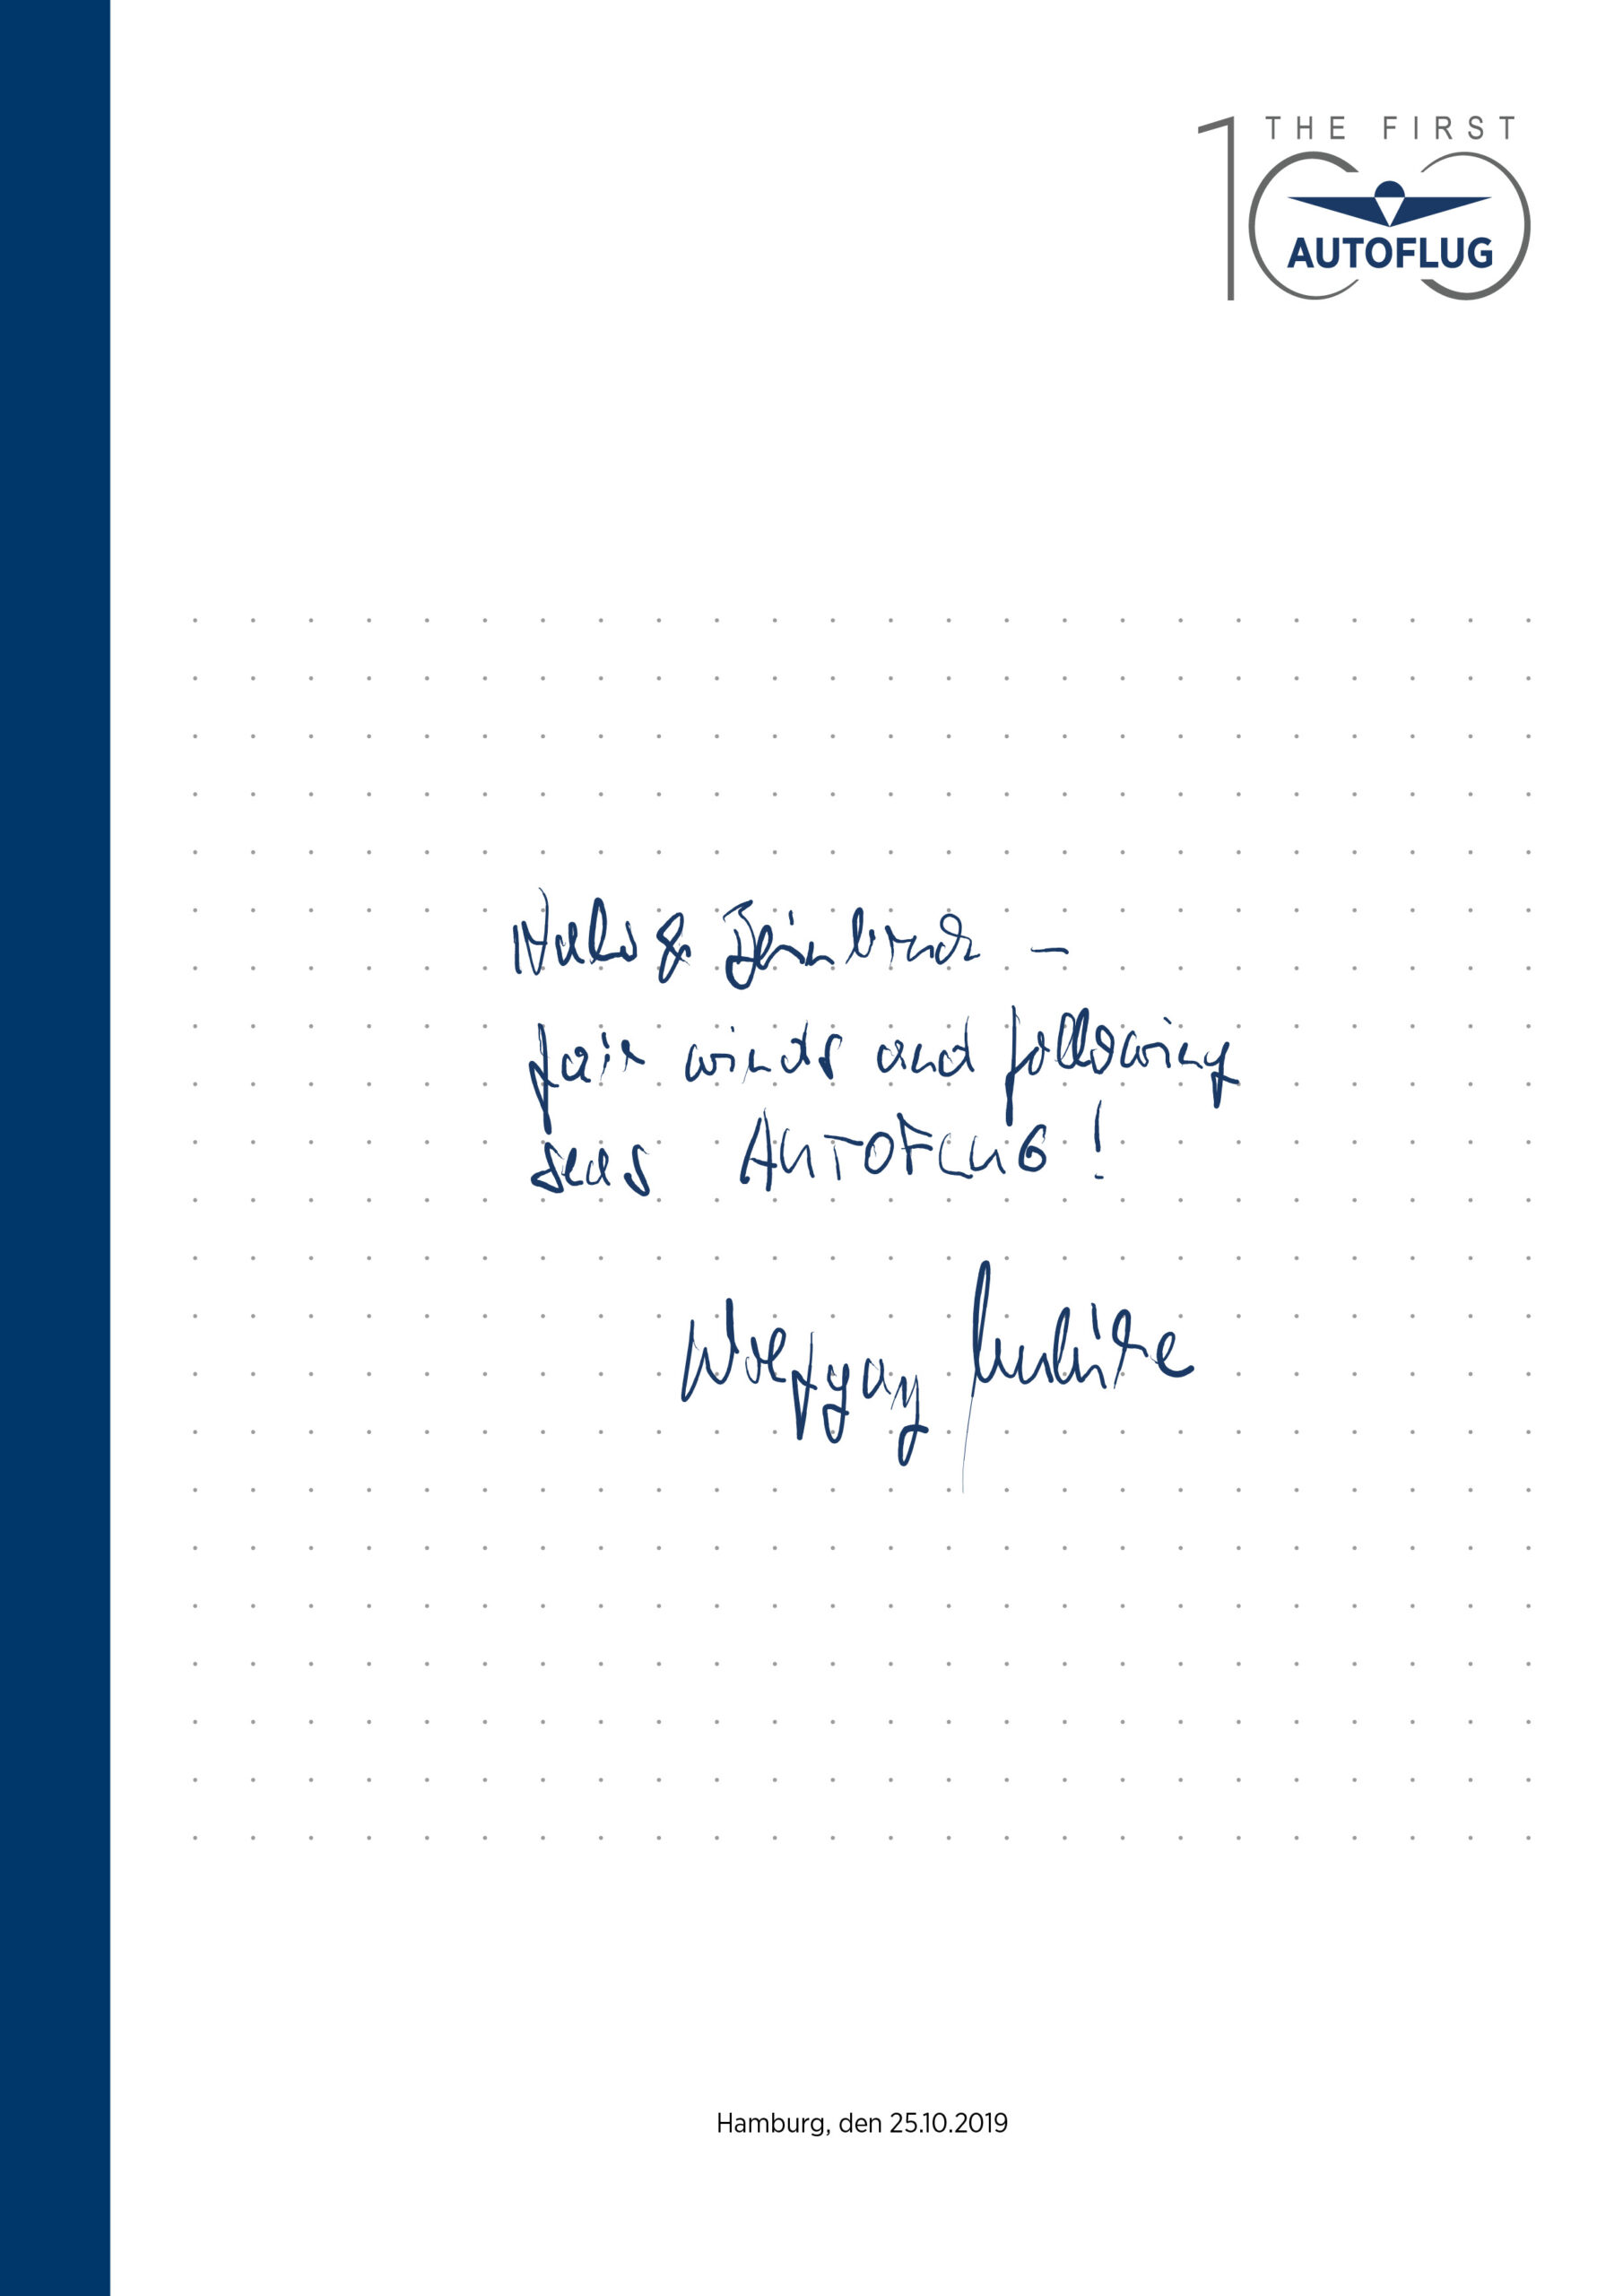 THE FIRST
100
AUTOFLUG
fair winds and following
seas AUTOFLUG!
Wolfgang
Hamburg, den 25.10.2019